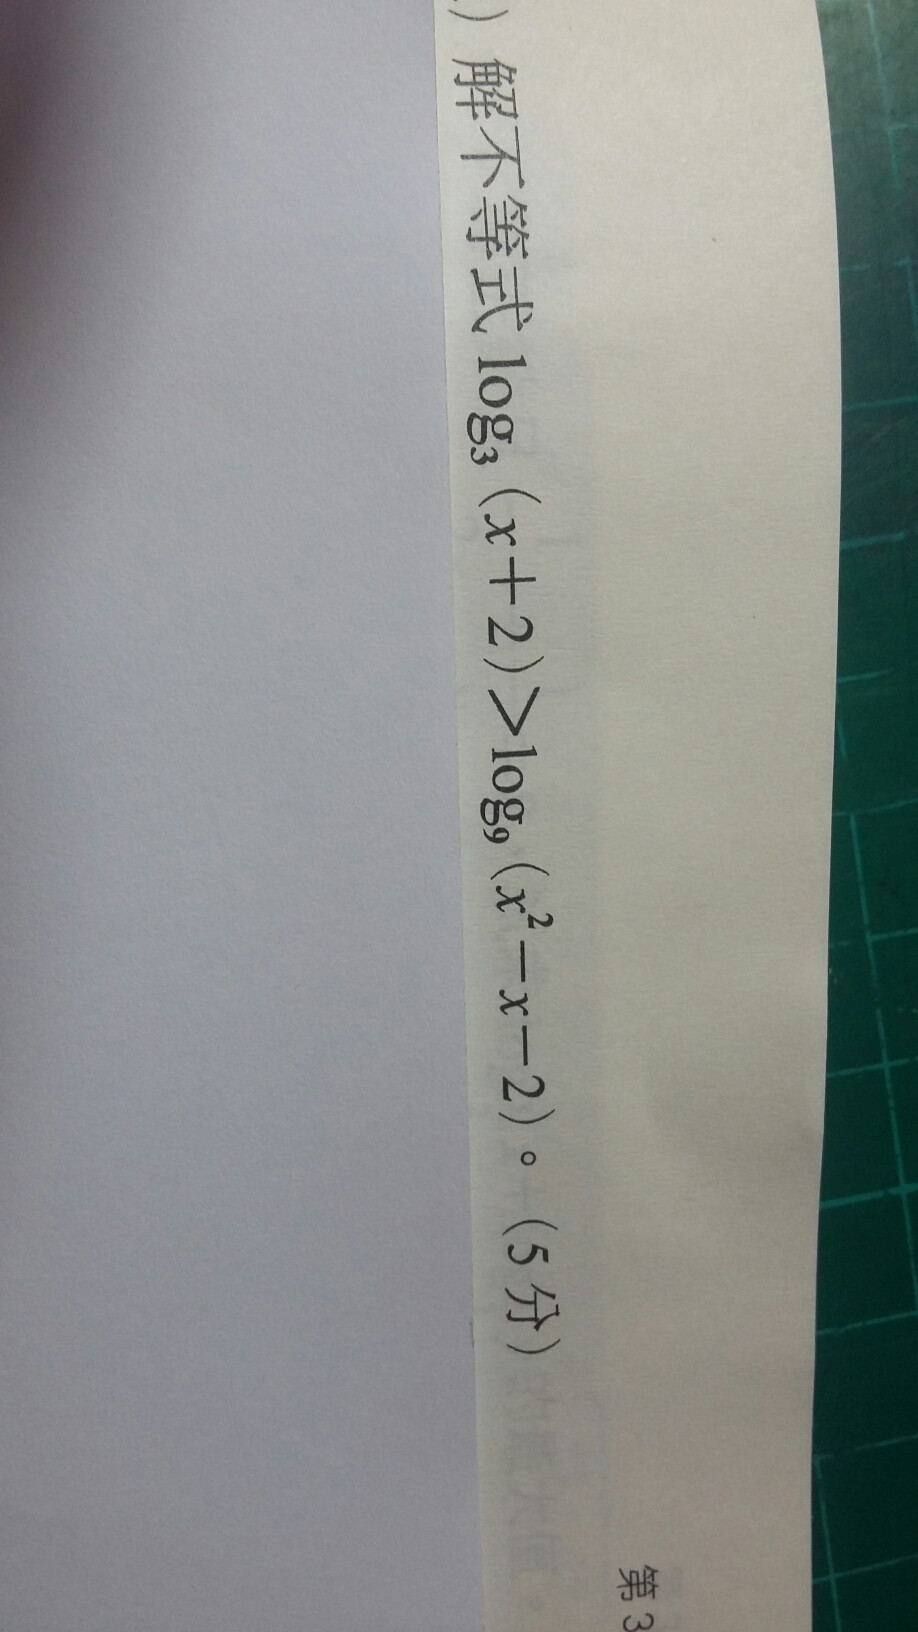 ) 解不等式 log₃ (x+2)>log₉ (x²-x-2)。(5分)
第3